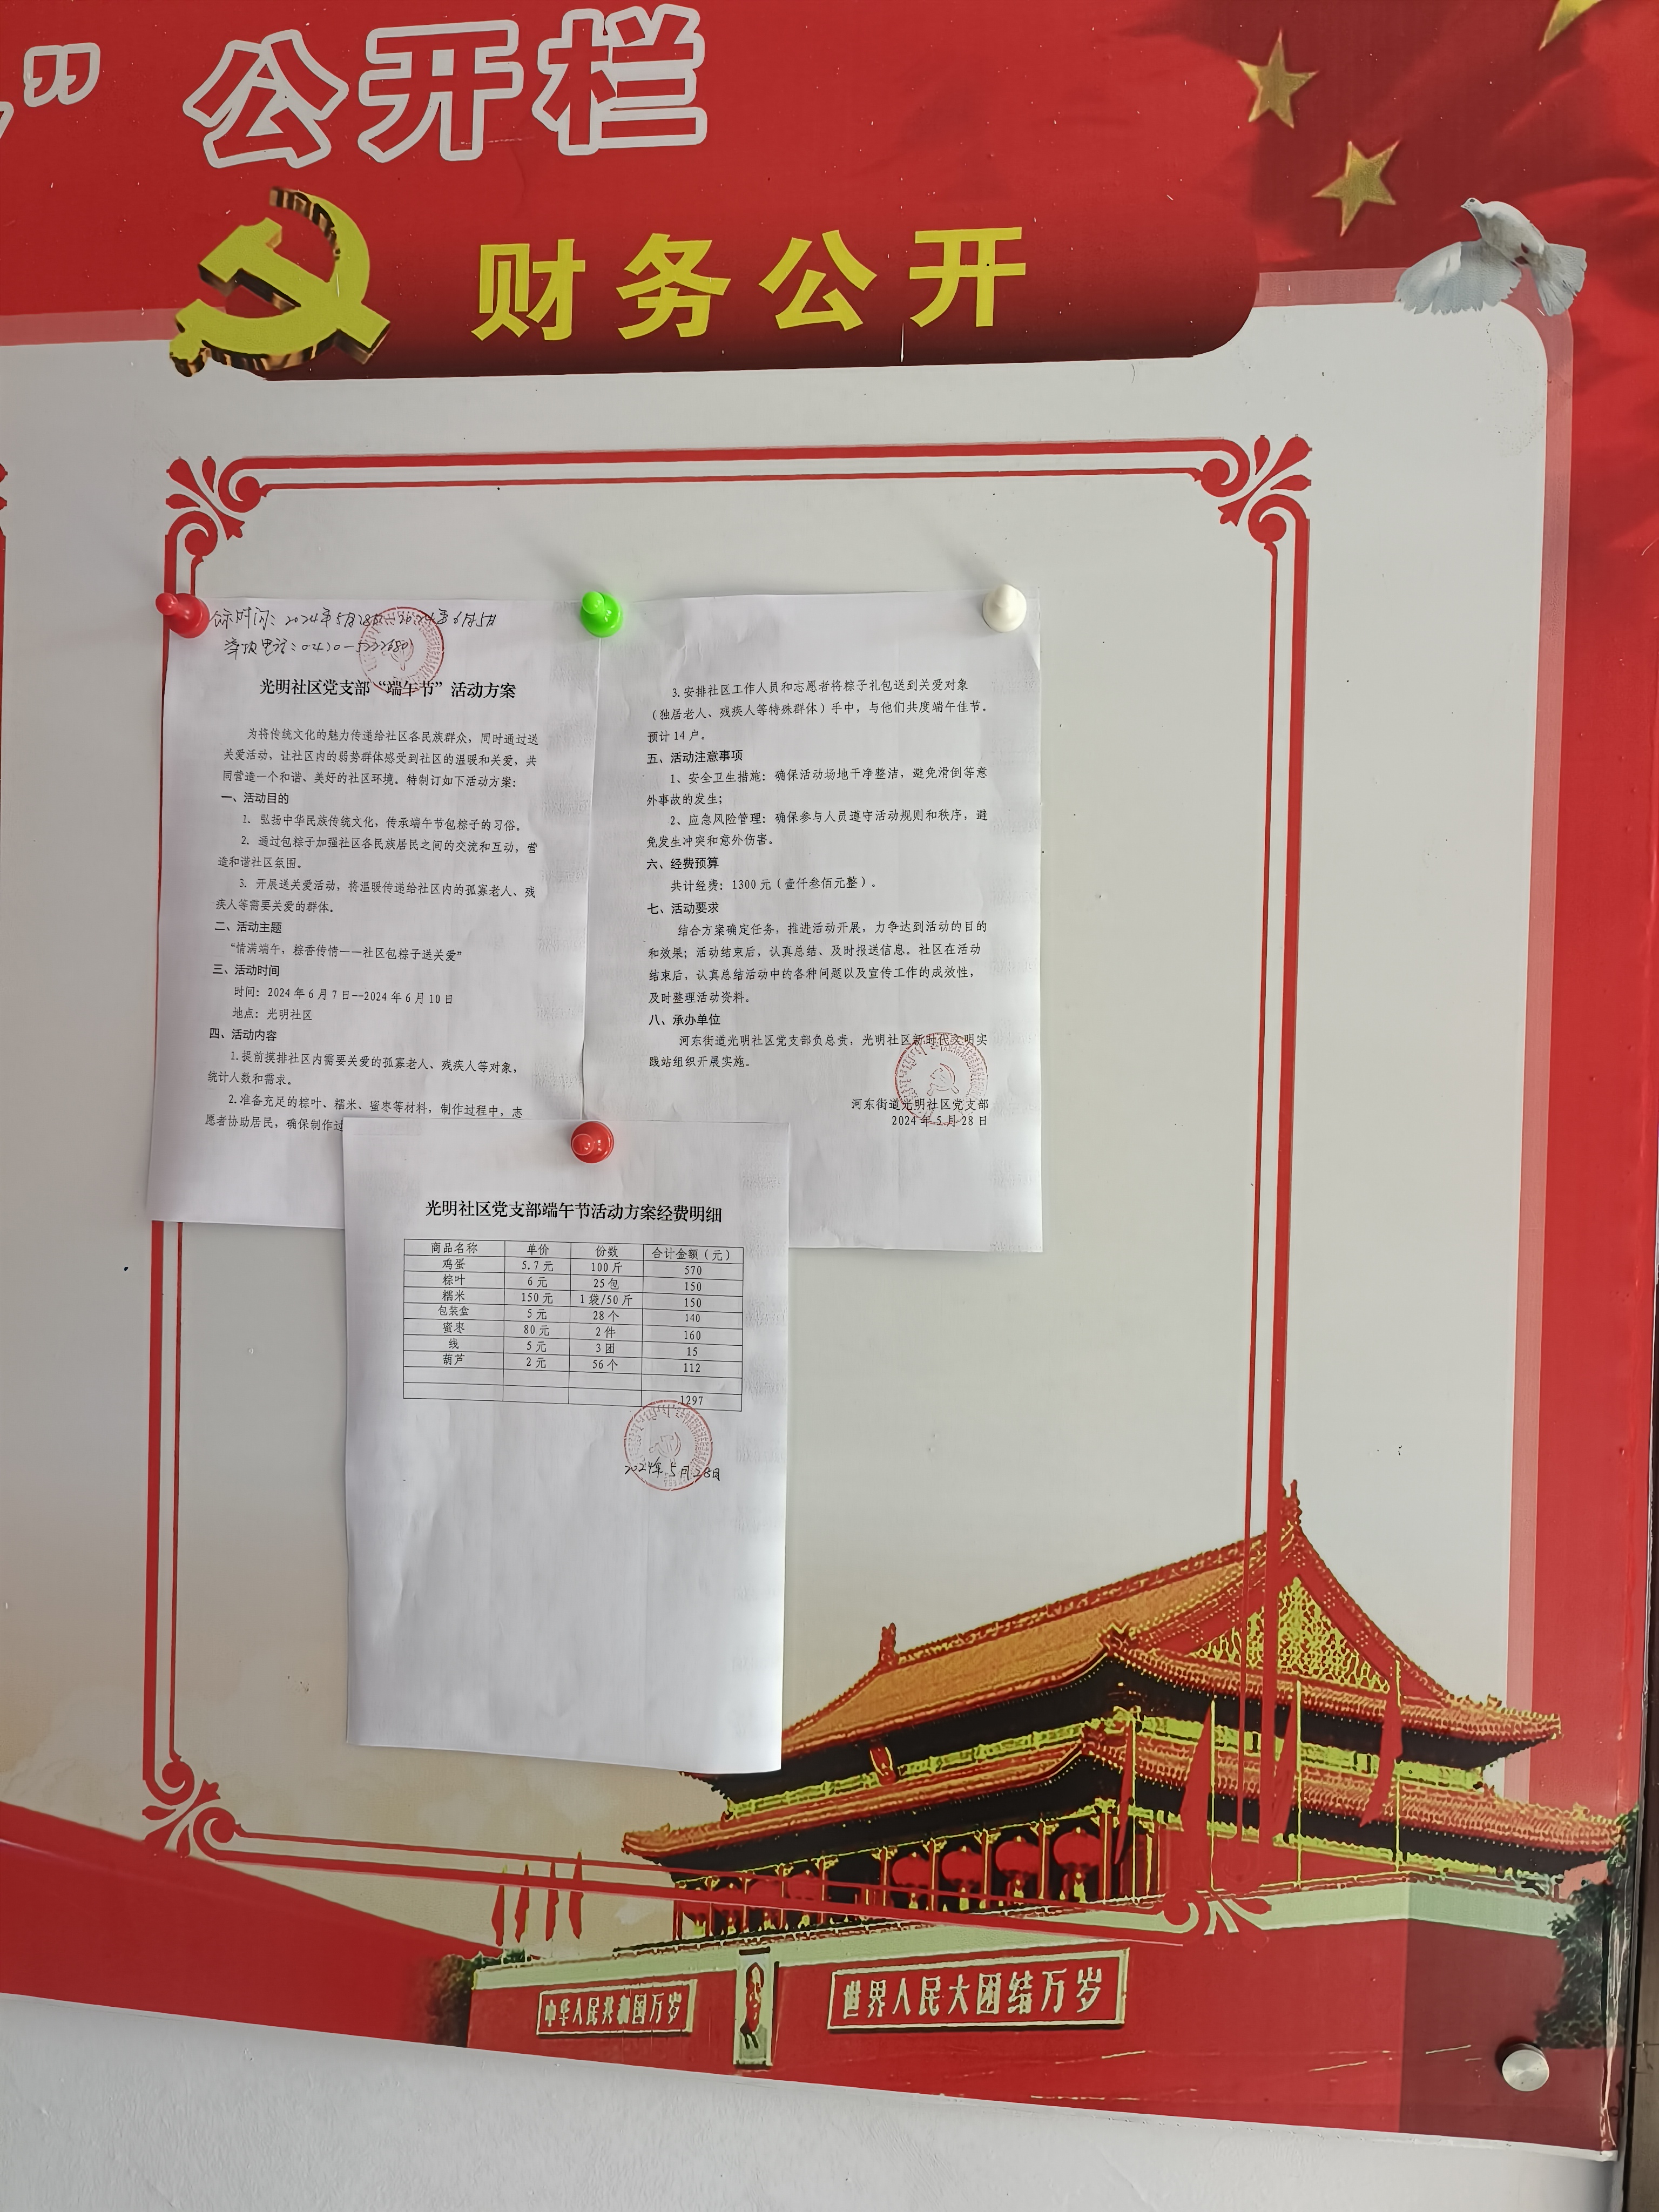 ” 公开栏
财务公开
公示时间：2024年5月28日-2024年6月5日
举报电话：0470-
光明社区党支部“端午节”活动方案
为将传统文化的魅力传递给社区各民族群众，同时通过送
关爱活动，让社区内的弱势群体感受到社区的温暖和关爱，共
同营造一个和谐、美好的社区环境。特制订如下活动方案：
一、活动目的
1. 弘扬中华民族传统文化，传承端午节包粽子的习俗。
2. 通过包粽子加强社区各民族居民之间的交流和互动，营
造和谐社区氛围。
3. 开展送关爱活动，将温暖传递给社区内的孤寡老人、残
疾人等需要关爱的群体。
二、活动主题
“情满端午，粽香传情——社区包粽子送关爱”
三、活动时间
时间：2024年6月7日--2024年6月10日
地点：光明社区
四、活动内容
1.提前摸排社区内需要关爱的孤寡老人、残疾人等对象，
统计人数和需求。
2.准备充足的粽叶、糯米、蜜枣等材料，制作过程中，志
愿者协助居民，确保制作过
3.安排社区工作人员和志愿者将粽子礼包送到关爱对象
（独居老人、残疾人等特殊群体）手中，与他们共度端午佳节。
预计14户。
五、活动注意事项
1、安全卫生措施：确保活动场地干净整洁，避免滑倒等意
外事故的发生；
2、应急风险管理：确保参与人员遵守活动规则和秩序，避
免发生冲突和意外伤害。
六、经费预算
共计经费：1300元（壹仟叁佰元整）。
七、活动要求
结合方案确定任务，推进活动开展，力争达到活动的目的
和效果；活动结束后，认真总结、及时报送信息。社区在活动
结束后，认真总结活动中的各种问题以及宣传工作的成效性，
及时整理活动资料。
八、承办单位
河东街道光明社区党支部负总责，光明社区新时代文明实
践站组织开展实施。
河东街道光明社区党支部
2024年5月28日
光明社区党支部端午节活动方案经费明细
商品名称 单价 份数 合计金额（元）
鸡蛋 5.7元 100斤 570
粽叶 6元 25包 150
糯米 150元 1袋/50斤 150
包装盒 5元 28个 140
蜜枣 80元 2件 160
线 5元 3团 15
葫芦 2元 56个 112
1297
2024年5月28日
中华人民共和国万岁
世界人民大团结万岁